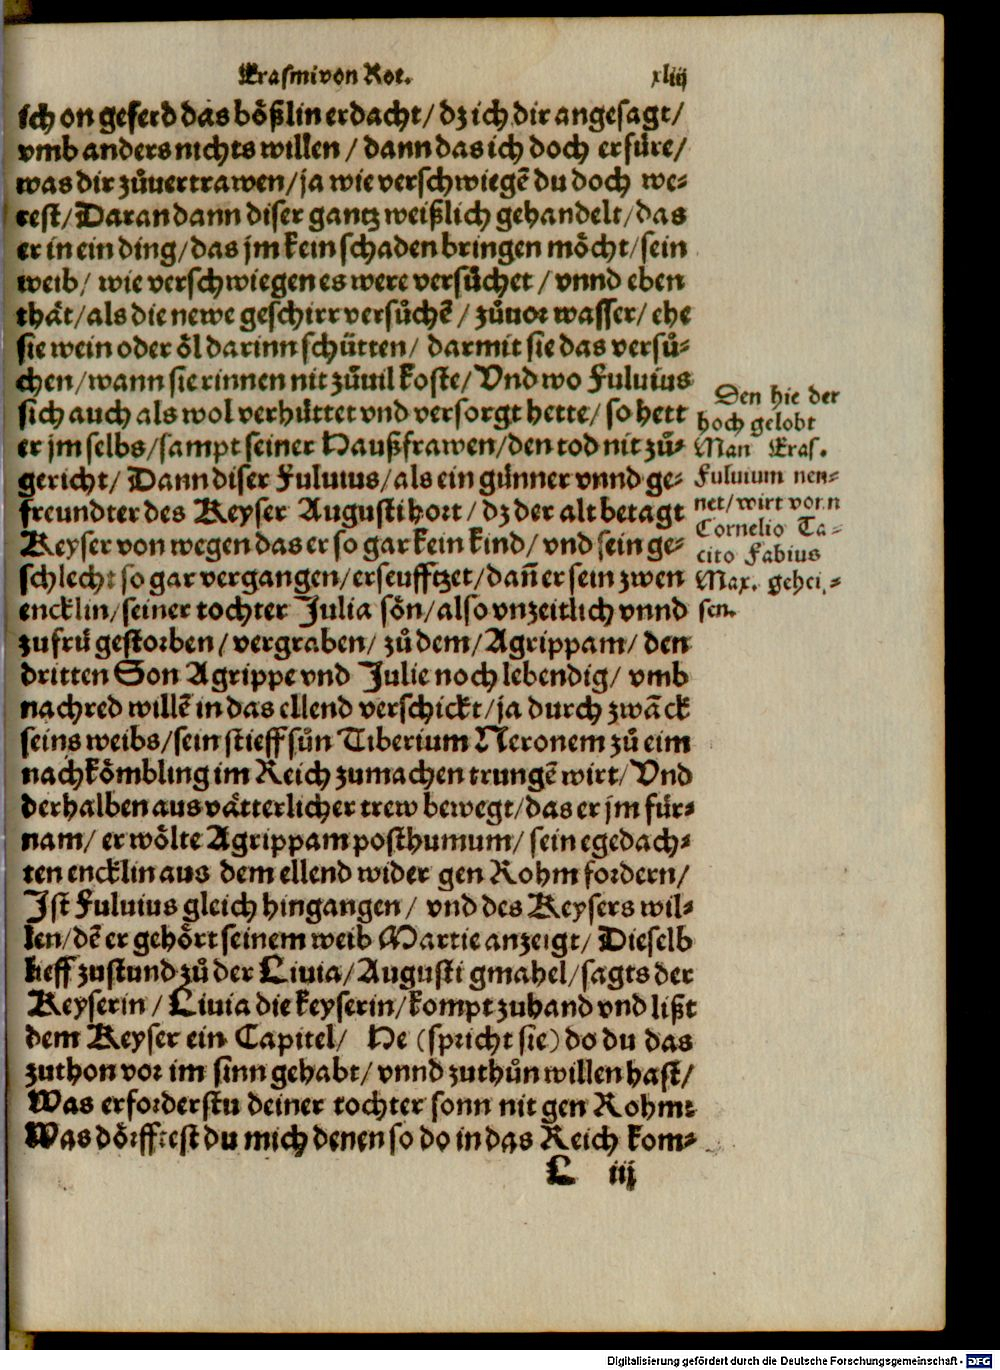 Erasmi von Rot. xliij
ich on geferd das bößlin erdacht/ dz ich dir angesagt/
vmb anders nichts willen / dann das ich doch erfüre/
was dir zůuertrawen/ ja wie verschwiegẽ du doch we⸗
rest/ Daran dann diser gantz weißlich gehandelt/ das
er in ein ding/ das jm kein schaden bringen möcht/ sein
weib/ wie verschwiegen es were versůchet / vnnd eben
thät/ als die newe geschirr versůchẽ / zůuor wasser/ ehe
sie wein oder öl darinn schütten/ darmit sie das versů⸗
chen/ wann sie rinnen nit zůuil koste/ Vnd wo Fuluius
sich auch als wol verhüttet vnd versorgt hette/ so hett
er jm selbs/ sampt seiner Haußfrawen/ den tod nit zů⸗
gericht/ Dann diser Fuluius/ als ein günner vnnd ge⸗
freundter des Keyser Augusti hort / dz der alt betagt
Keyser von wegen das er so gar kein kind/ vnd sein ge⸗
schlecht so gar vergangen/ erseufftzet/ dañ er sein zwen
encklin/ seiner tochter Julia sön/ also vnzeitlich vnnd
zu frü gestorben / vergraben/ zů dem/ Agrippam/ den
dritten Son Agrippe vnd Julie noch lebendig/ vmb
nachred willẽ in das ellend verschickt/ ja durch zwãck
seins weibs/ sein stieff sůn Tiberium Neronem zů eim
nachkömbling im Reich zumachen trungẽ wirt/ Vnd
derhalben aus vätterlicher trew bewegt/ das er jm für⸗
nam/ er wölte Agrippam posthumum/ sein egedach⸗
ten encklin aus dem ellend wider gen Rohm fordern/
Ist Fuluius gleich hingangen / vnd des Keysers wil⸗
len/ dẽ er gehört seinem weib Martie anzeigt/ Dieselb
lieff zustund zů der Liuia/ Augusti gmahel/ sagts der
Keyserin / Liuia die keyserin/ kompt zuhand vnd lißt
dem Keyser ein Capitel/ He (spricht sie) do du das
zuthon vor im sinn gehabt/ vnnd zuthůn willen hast/
Was erforderstu deiner tochter sonn nit gen Rohm:
Was dörfftest du mich denen so do in das Reich kom⸗
L iij
Den hie der
hoch gelobt
Man Eras.
Fuluium nen⸗
net/ wirt vorn
Cornelio Ta⸗
cito Fabius
Max. gehei⸗
sen.
Digitalisierung gefördert durch die Deutsche Forschungsgemeinschaft - DFG